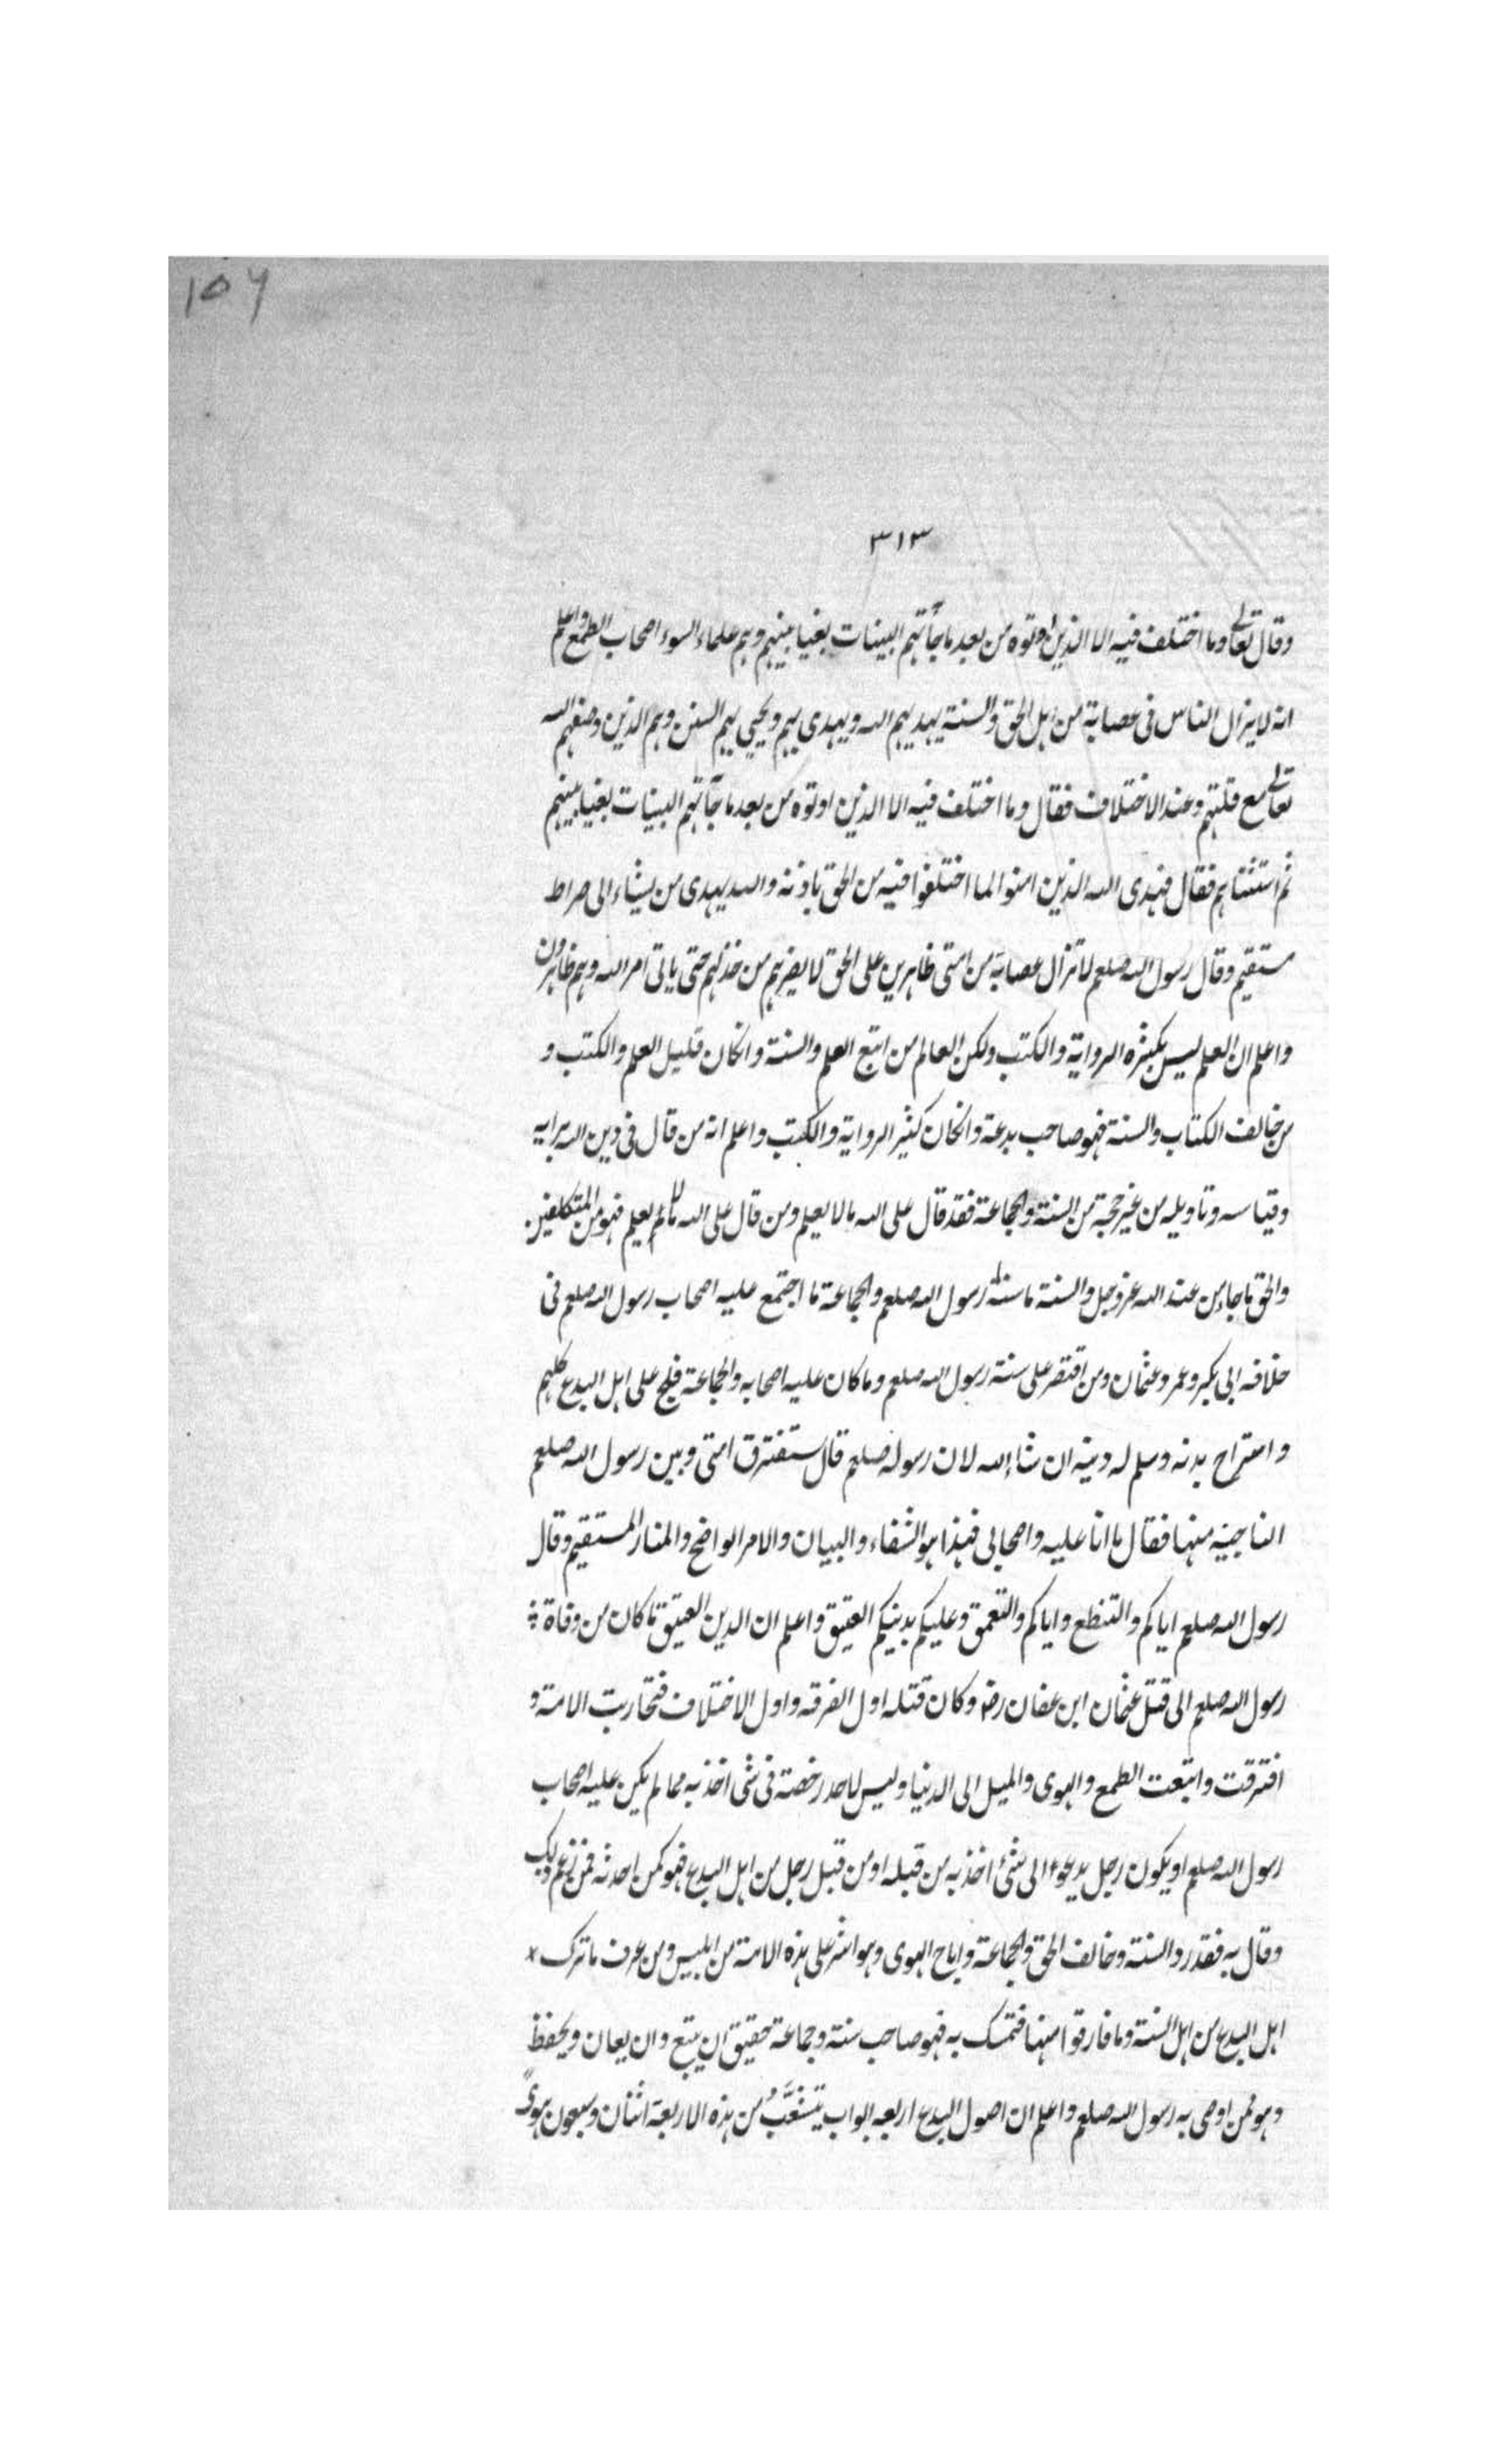 156
٣١٣
وقال تعالى وما اختلف فيه الا الذين اوتوه من بعد ما جآءتهم البينات بغيا بينهم وهم علماء السوء اصحاب الطمع واعلم
انه لا يزال الناس في عصابة من اهل الحق والسنة يهديهم الله ويهدى بهم ويحيي بهم السنن وهم الذين وصفهم الله
تعالى مع قلتهم وعند الاختلاف فقال وما اختلف فيه الا الذين اوتوه من بعد ما جآءتهم البينات بغيا بينهم
ثم استثناهم فقال فهدى الله الذين امنوا لما اختلفوا فيه من الحق باذنه والله يهدى من يشاء الى صراط
مستقيم وقال رسول الله صلعم لا تزال عصابة من امتى ظاهرين على الحق لا يضرهم من خذلهم حتى ياتى امر الله وهم ظاهرون
واعلم ان العلم ليس بكثرة الرواية والكتب ولكن العالم من اتبع العلم والسنة وانكان قليل العلم والكتب و
من خالف الكتاب والسنة فهو صاحب بدعة وانكان كثير الرواية والكتب واعلم انه من قال فى دين الله برايه
وقياسه وتاويله من غير حجة من السنة والجماعة فقد قال على الله ما لا يعلم ومن قال على الله ما لا يعلم فهو من المتكلفين
والحق ما جاء من عند الله عز وجل والسنة ما سنه رسول الله صلعم والجماعة ما اجتمع عليه اصحاب رسول الله صلعم فى
خلافه ابى بكر وعمر وعثمان ومن اقتصر على سنة رسول الله صلعم وما كان عليه اصحابه والجماعة فلج على اهل البدع كلهم
واستراح بدنه وسلم له دينه ان شاء الله لان رسوله صلعم قال ستفترق امتى وبين رسول الله صلعم
الناجيه منها فقال ما انا عليه واصحابى فهذا هو الشفاء والبيان والامر الواضح والمنار المستقيم وقال
رسول الله صلعم اياكم والتنطع واياكم والتعمق وعليكم بدينكم العتيق واعلم ان الدين العتيق ما كان من وفاة
رسول الله صلعم الى قتل عثمان ابن عفان رضـ وكان قتله اول الفرقه واول الاختلاف فتحاربت الامة و
افترقت واتبعت الطمع والهوى والميل الى الدنيا وليس لاحد رخصة فى شئ اخذ به مما لم يكن عليه اصحاب
رسول الله صلعم او يكون رجل يدعوا الى شئ اخذ به من قبله او من قبل رجل من اهل البدع فهو كمن احدثه فمن زعم ذلك
وقال به فقد رد السنة وخالف الحق والجماعة واباح الهوى وهو اشر على هذه الامة من ابليس ومن عرف ما ترك
اهل البدع من اهل السنة وما فارقوا منها فتمسك به فهو صاحب سنة وجماعة حقيق ان يتبع وان يعان ويحفظ
وهو ممن اوصى به رسول الله صلعم واعلم ان اصول البدع اربعه ابواب يتشعب من هذه الاربعة اثنان وسبعون هوىً